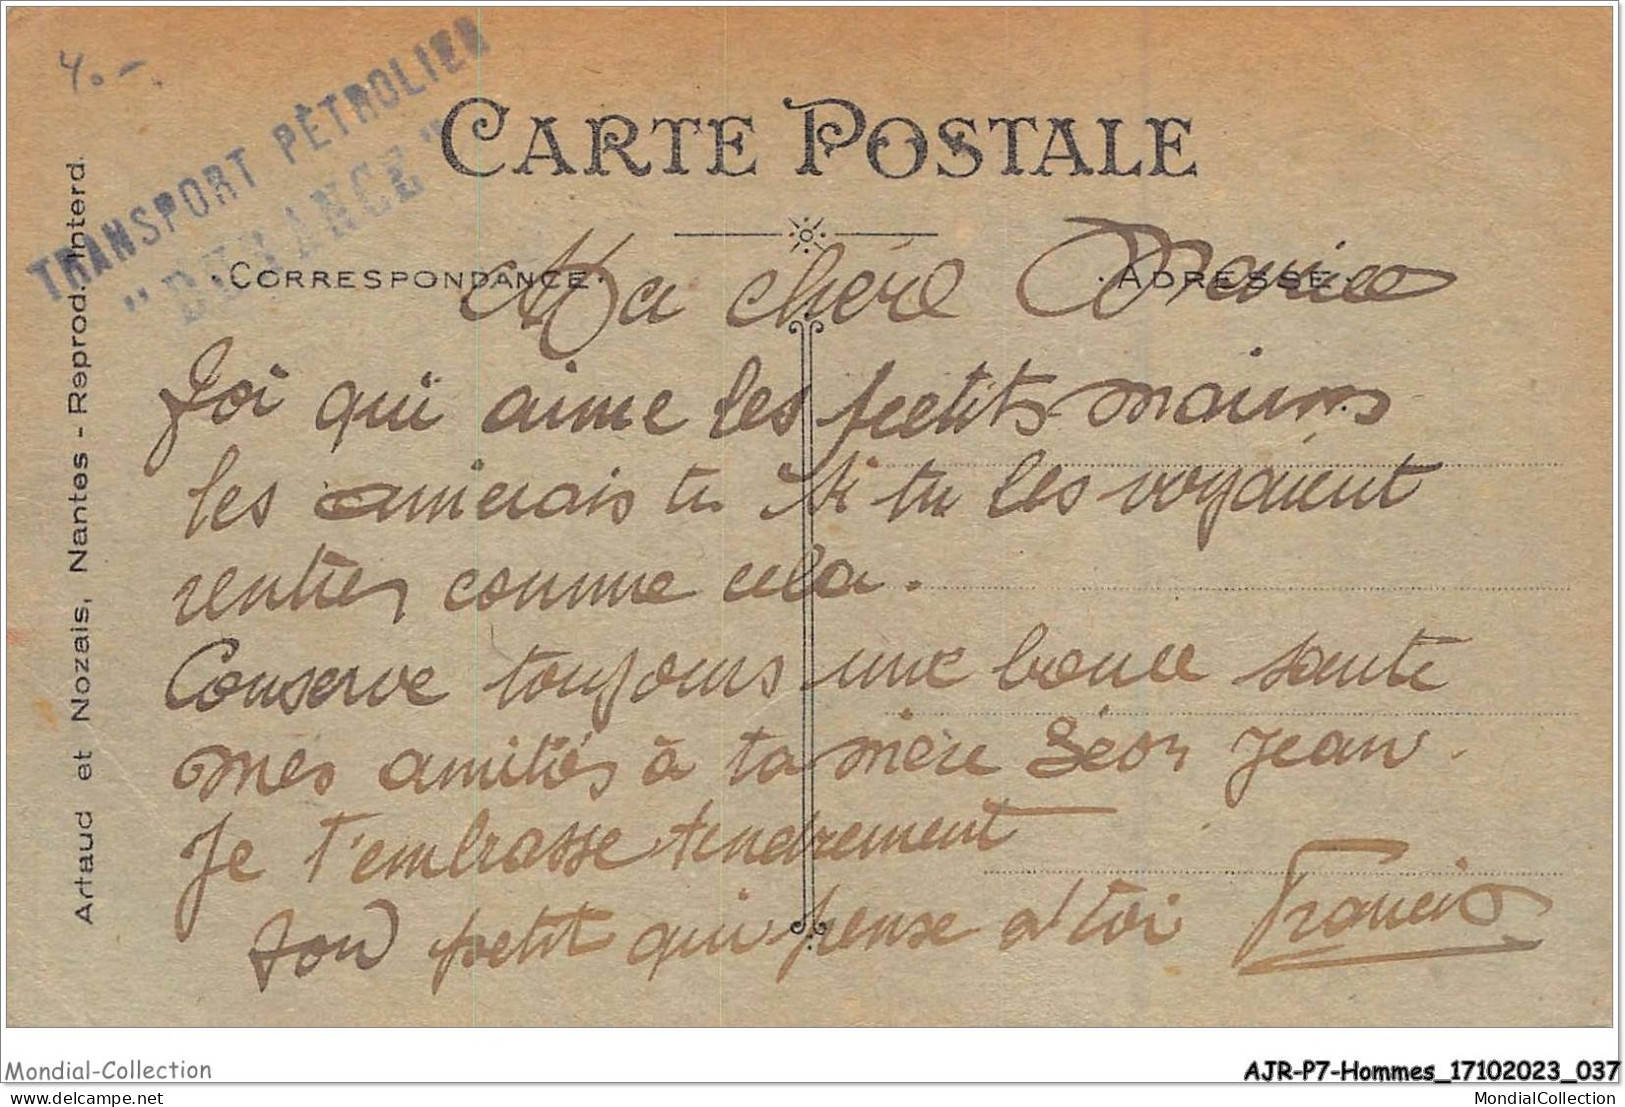 4.-.
TRANSPORT PÉTROLIER
"DURANCE"
CARTE POSTALE
CORRESPONDANCE
ADRESSE
Ma chère
Toi qui aime les petits marins
les aimerais tu si tu les voyaient
rentrer comme cela.
Conserve toujours une bonne sante
mes amitiés à ta mère Léon Jean.
Je t'embrasse tendrement
Ton petit qui pense a toi Francis
Artaud et Nozais, Nantes - Reprod. Interd.
Mondial-Collection
AJR-P7-Hommes_17102023_037
MondialCollection